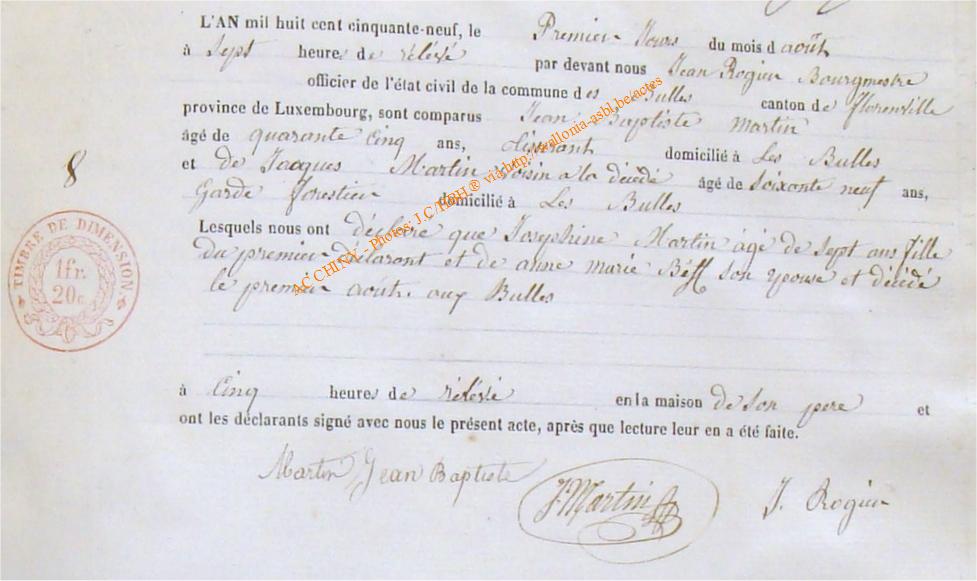 L'AN mil huit cent cinquante-neuf, le Premier Jours du mois d août
à Sept heures de rélévé par devant nous Jean Rogier Bourgmestre
officier de l'état civil de la commune des Bulles canton de florenville
province de Luxembourg, sont comparus Jean Baptiste Martin
âgé de quarante Cinq ans, domicilié à Les Bulles
et de Jacques Martin voisin a la décédé âgé de Soixante neuf ans,
Garde forestier domicilié à Les Bulles
Lesquels nous ont déclaré que Josephine Martin agé de Sept ans fille
du premier déclarant et de anne marie son epouse et décédé
le premier août. aux Bulles
à Cinq heures de rélévé en la maison de son pere et
ont les déclarants signé avec nous le présent acte, après que lecture leur en a été faite.
Martin Jean Baptiste
J. Martin
J. Rogier
8
TIMBRE DE DIMENSION
1fr.
20c.
AC CHINY - Photos: J.C/HBH ® via http://wallonia-asbl.be/actes